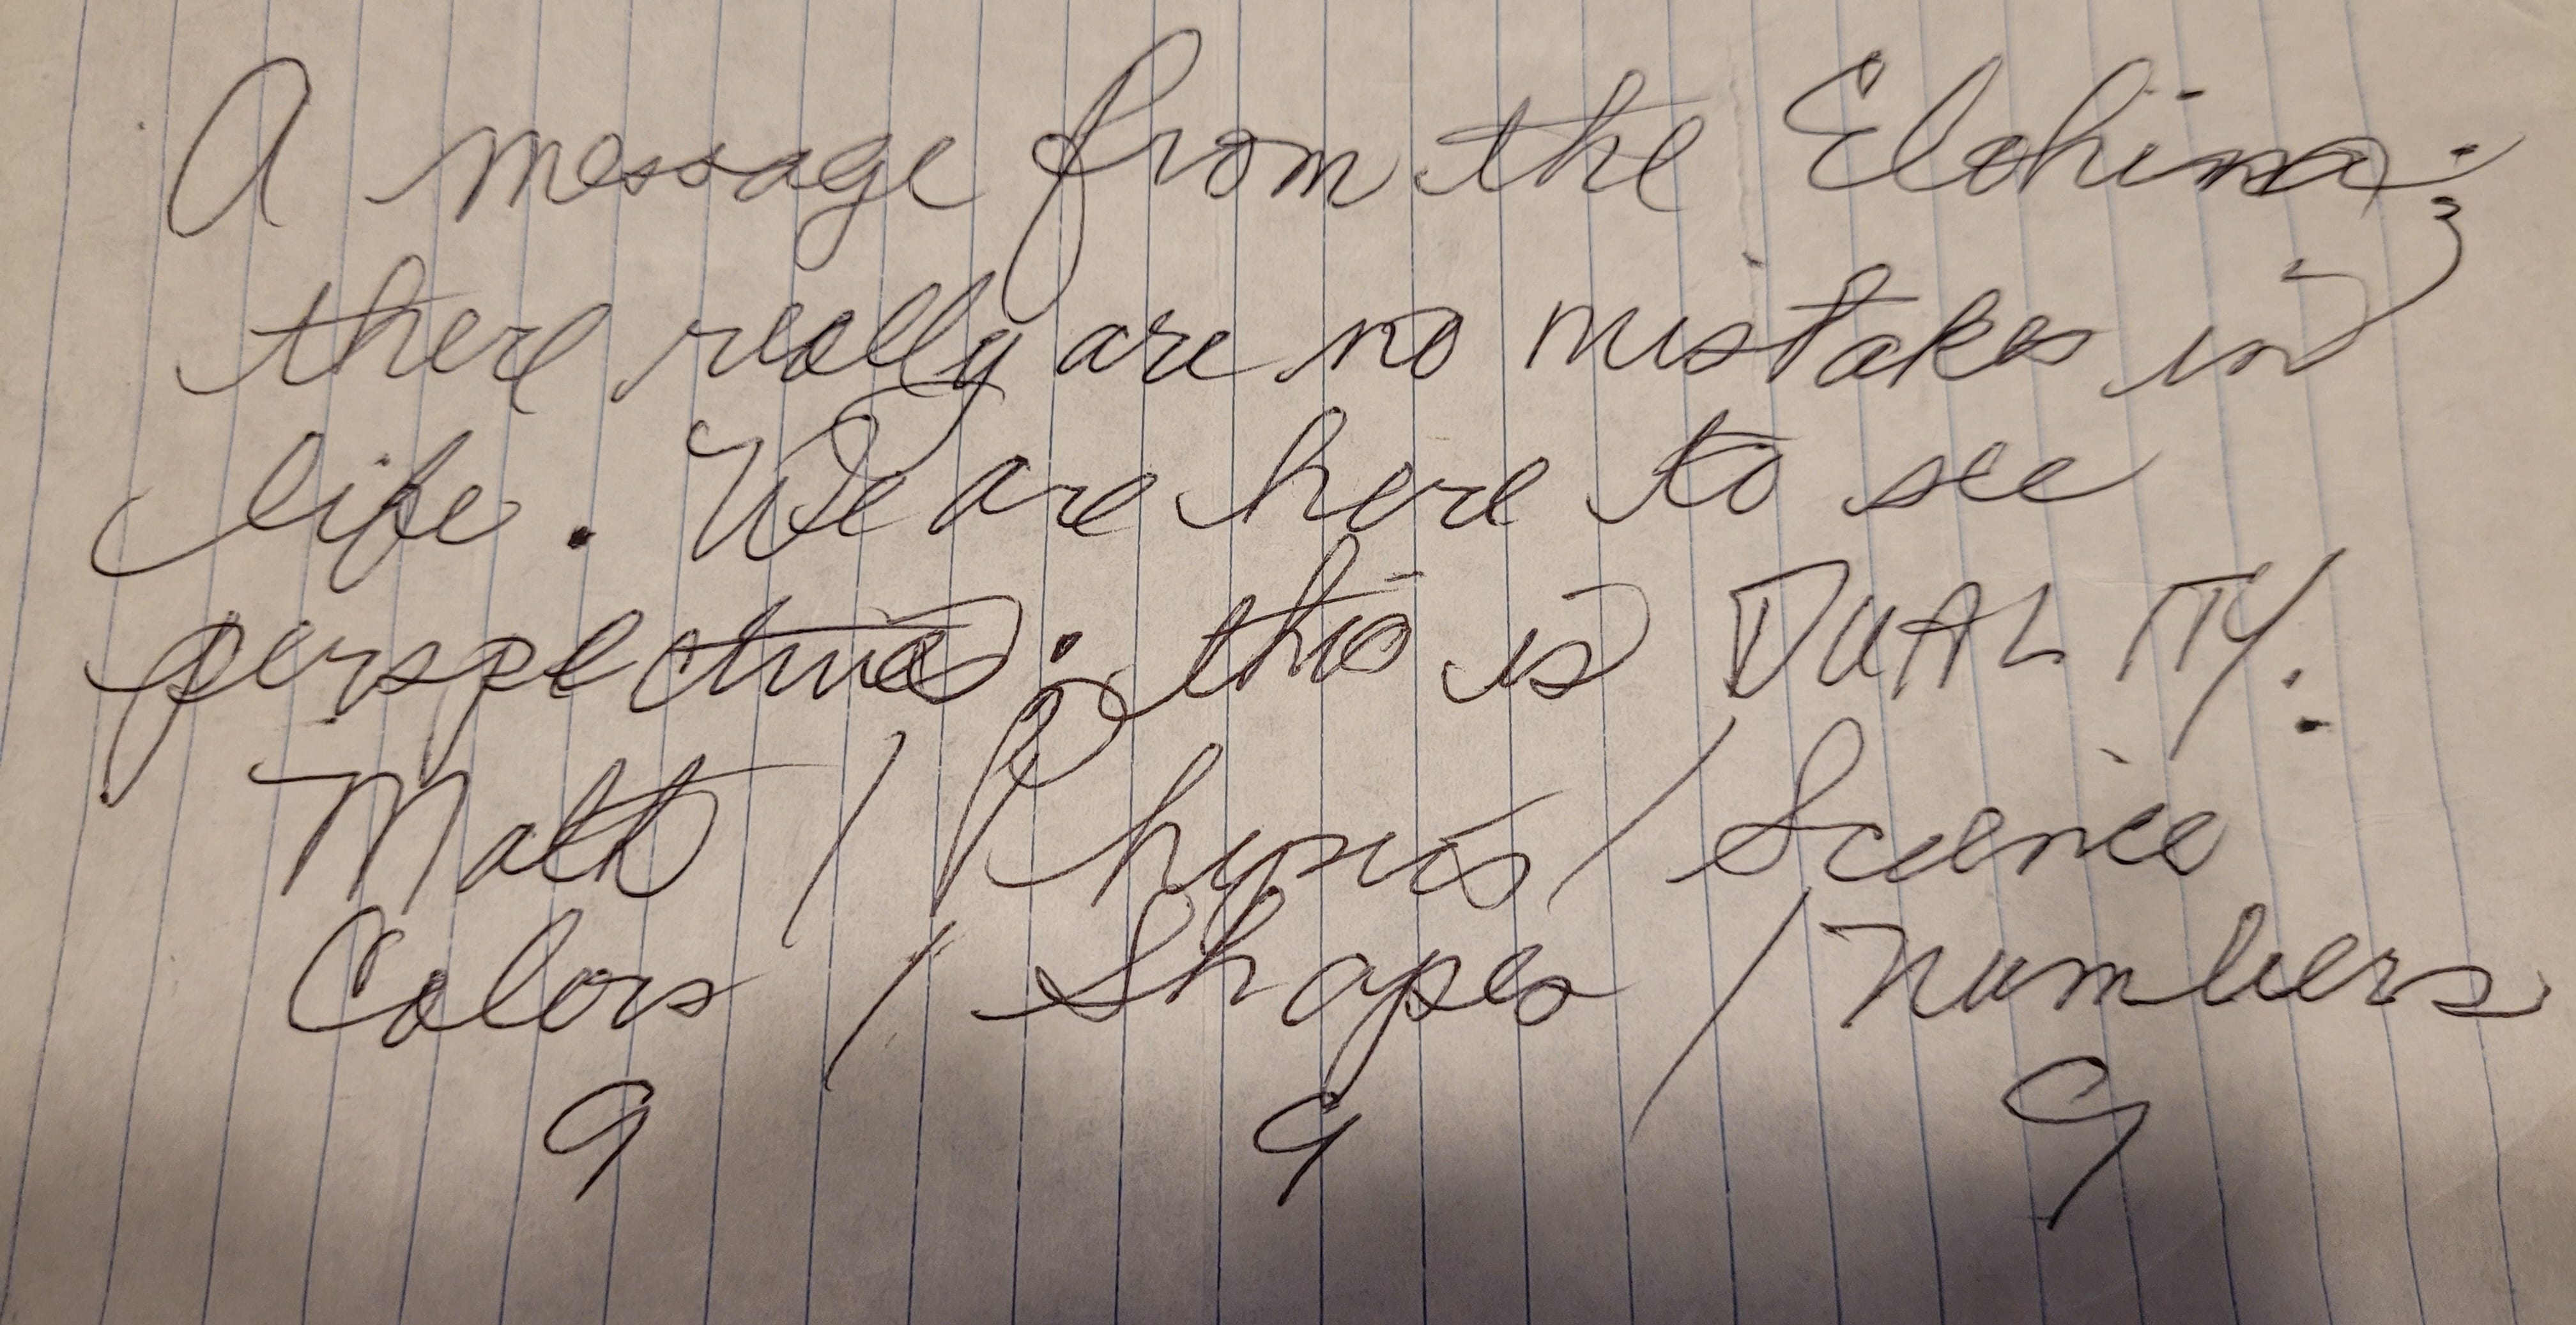 A message from the Elohim:
there really are no mistakes in
life. We are here to see
perspectives: this is DUALITY!
Math / Physics / Science
Colors / Shapes / Numbers
9 9 9